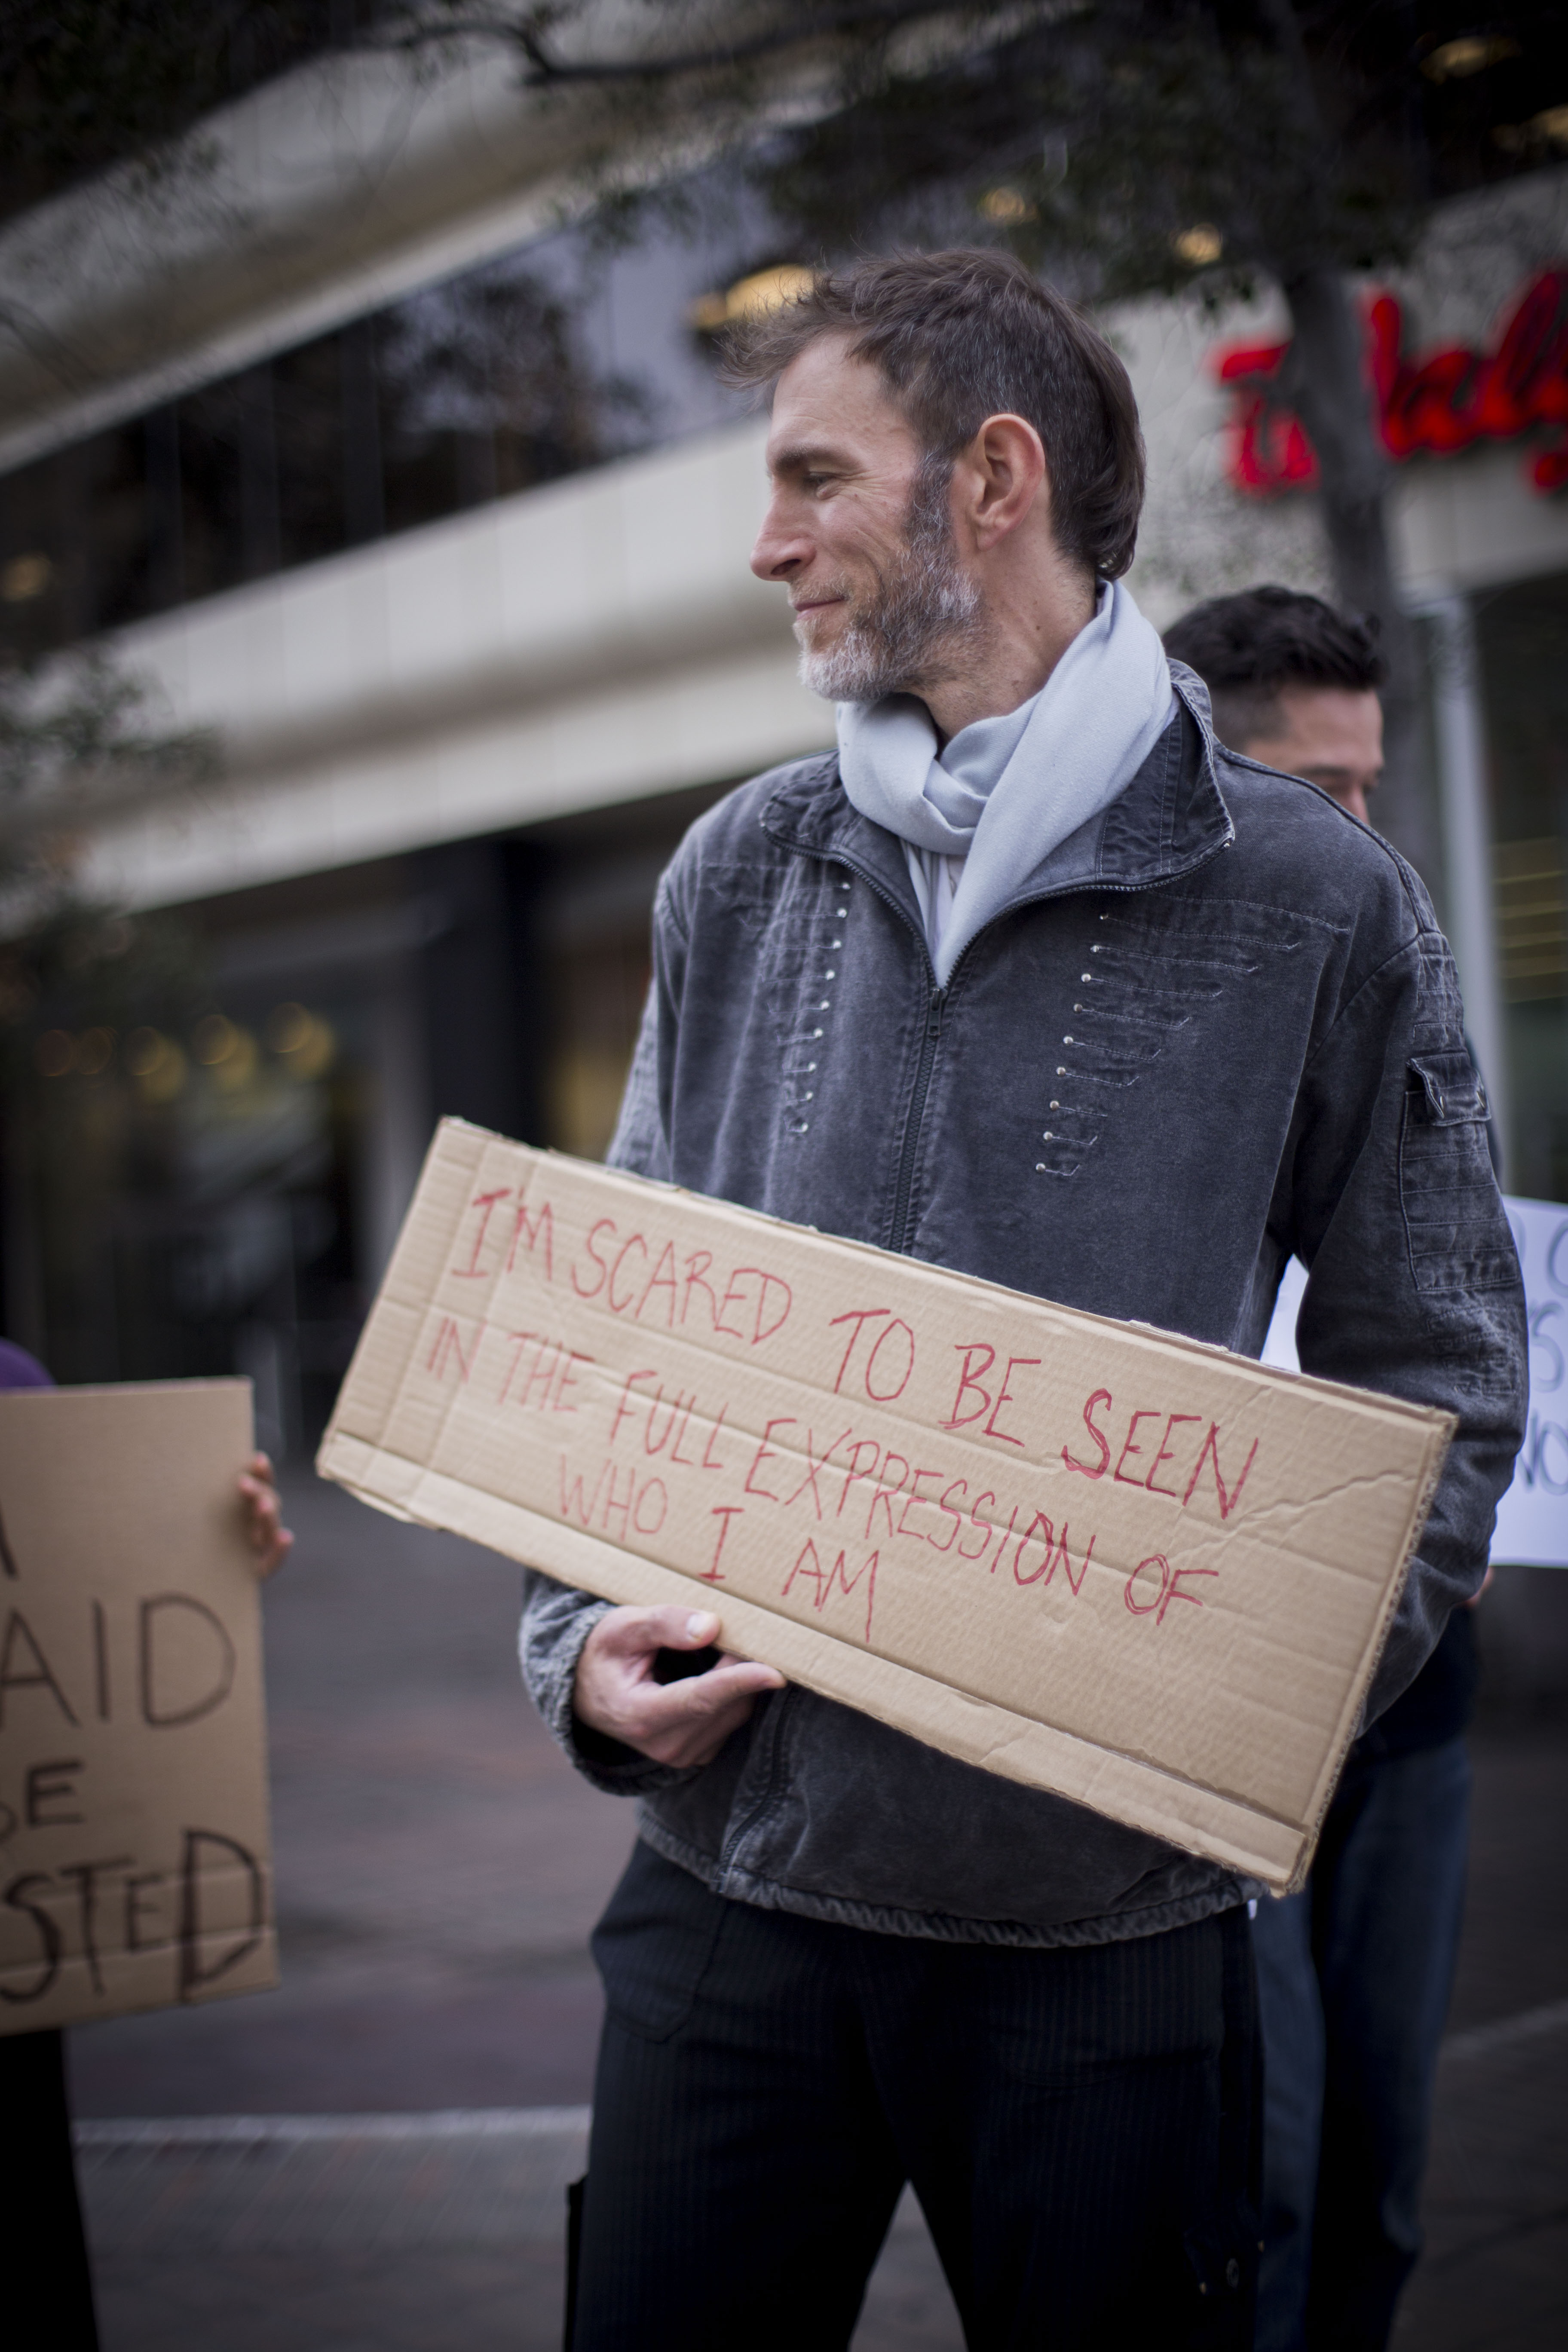 I'M SCARED TO BE SEEN
IN THE FULL EXPRESSION OF
WHO I AM
AID
BE
STED